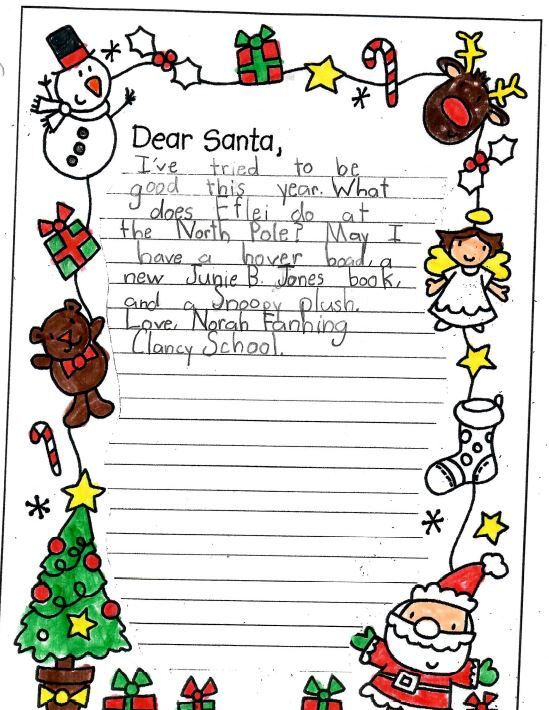 Dear Santa,
I've tried to be
good this year. What
does Eflei do at
the North Pole? May I
have a hover boad, a
new Junie B. Jones book,
and a Snoopy plush.
Love, Norah Fanning
Clancy School.